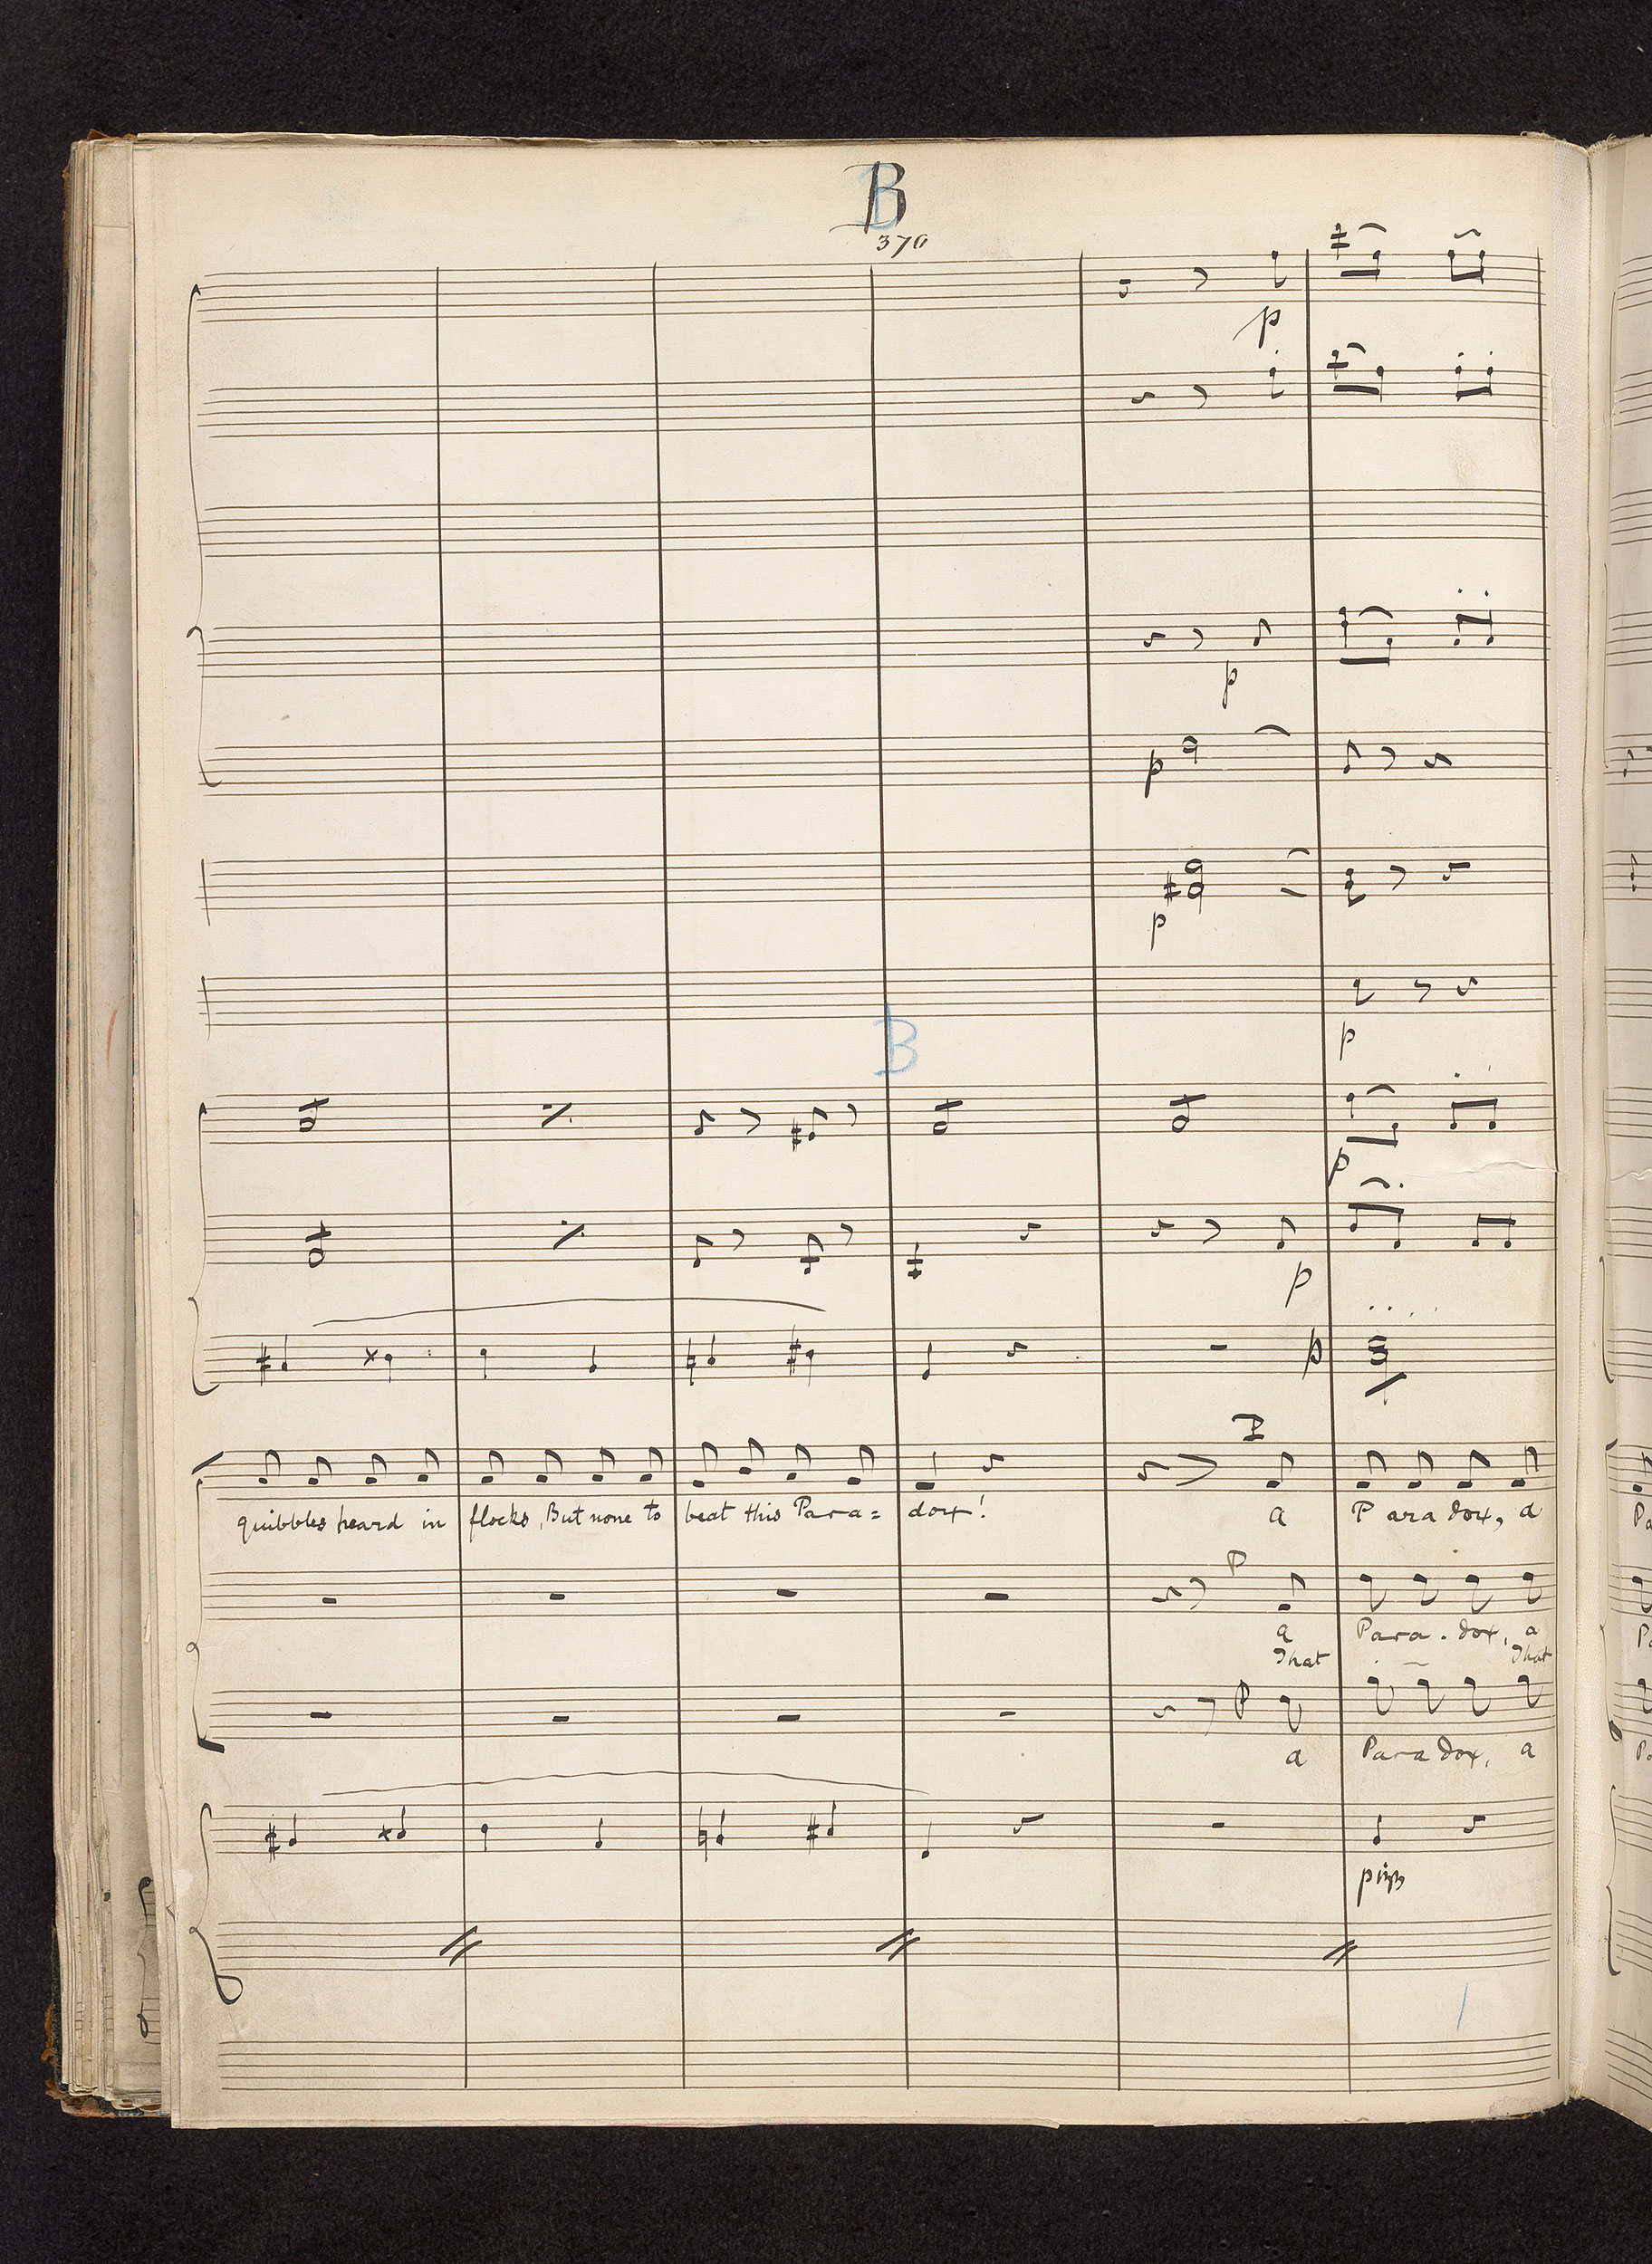 B
370
p
p
p
p
p
B
p
p
p
quibbles heard in flocks, But none to beat this Para= dox! a Paradox, a
P
a Para-dox, a
That That
P
a Paradox, a
pizz